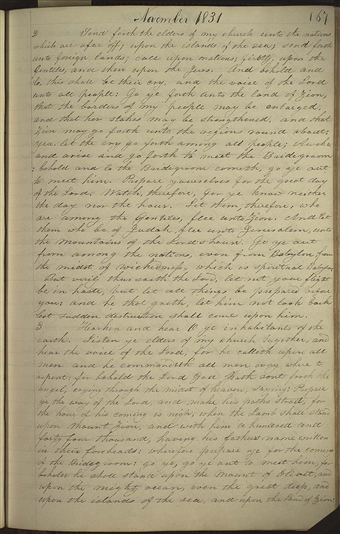 November 1831 167
2 Send forth the elders of my church unto the nations
which are afar off; upon the islands of the sea; send forth
unto foreign lands; call upon nations; firstly, upon the
Gentiles, and then upon the Jews. And behold and
lo, this shall be their cry, and the voice of the Lord
unto all people: Go ye forth unto the land of Zion,
that the borders of my people may be enlarged,
and that her stakes may be strengthened, and that
Zion may go forth unto the regions round about;
yea, let the cry go forth among all people; Awake
and arise and go forth to meet the Bridegroom
: behold and lo the Bridegroom cometh, go ye out
to meet him. Prepare yourselves for the great day
of the Lord. Watch, therefore, for ye know neither
the day nor the hour. Let them, therefore, who
are among the Gentiles, flee unto Zion. And let
them who be of Judah, flee unto Jerusalem, unto
the mountains of the Lord's house. Go ye out
from among the nations, even from Babylon, from
the midst of wickedness, which is spiritual Babylon
But verily thus saith the Lord, let not your flight
be in haste, but let all things be prepared before
you: and he that goeth, let him not look back
lest sudden destruction shall come upon him.
3 Hearken and hear O ye inhabitants of the
earth. Listen ye elders of my church together, and
hear the voice of the Lord, for he calleth upon all
men and he commandeth all men every where to
repent; for behold the Lord God hath sent forth the
angel, crying through the midst of heaven, saying: Prepare
ye the way of the Lord, and make his paths strait, for
the hour of his coming is nigh, when the Lamb shall stand
upon Mount Zion, and with him a hundred and
forty four thousand, having his father's name written
in their foreheads: wherefore prepare ye for the coming
of the Bridegroom: go ye, go ye out to meet him, for
behold he shall stand upon the mount of Olivet, and
upon the mighty ocean, even the great deep, and
upon the islands of the sea, and upon the land of Zion;